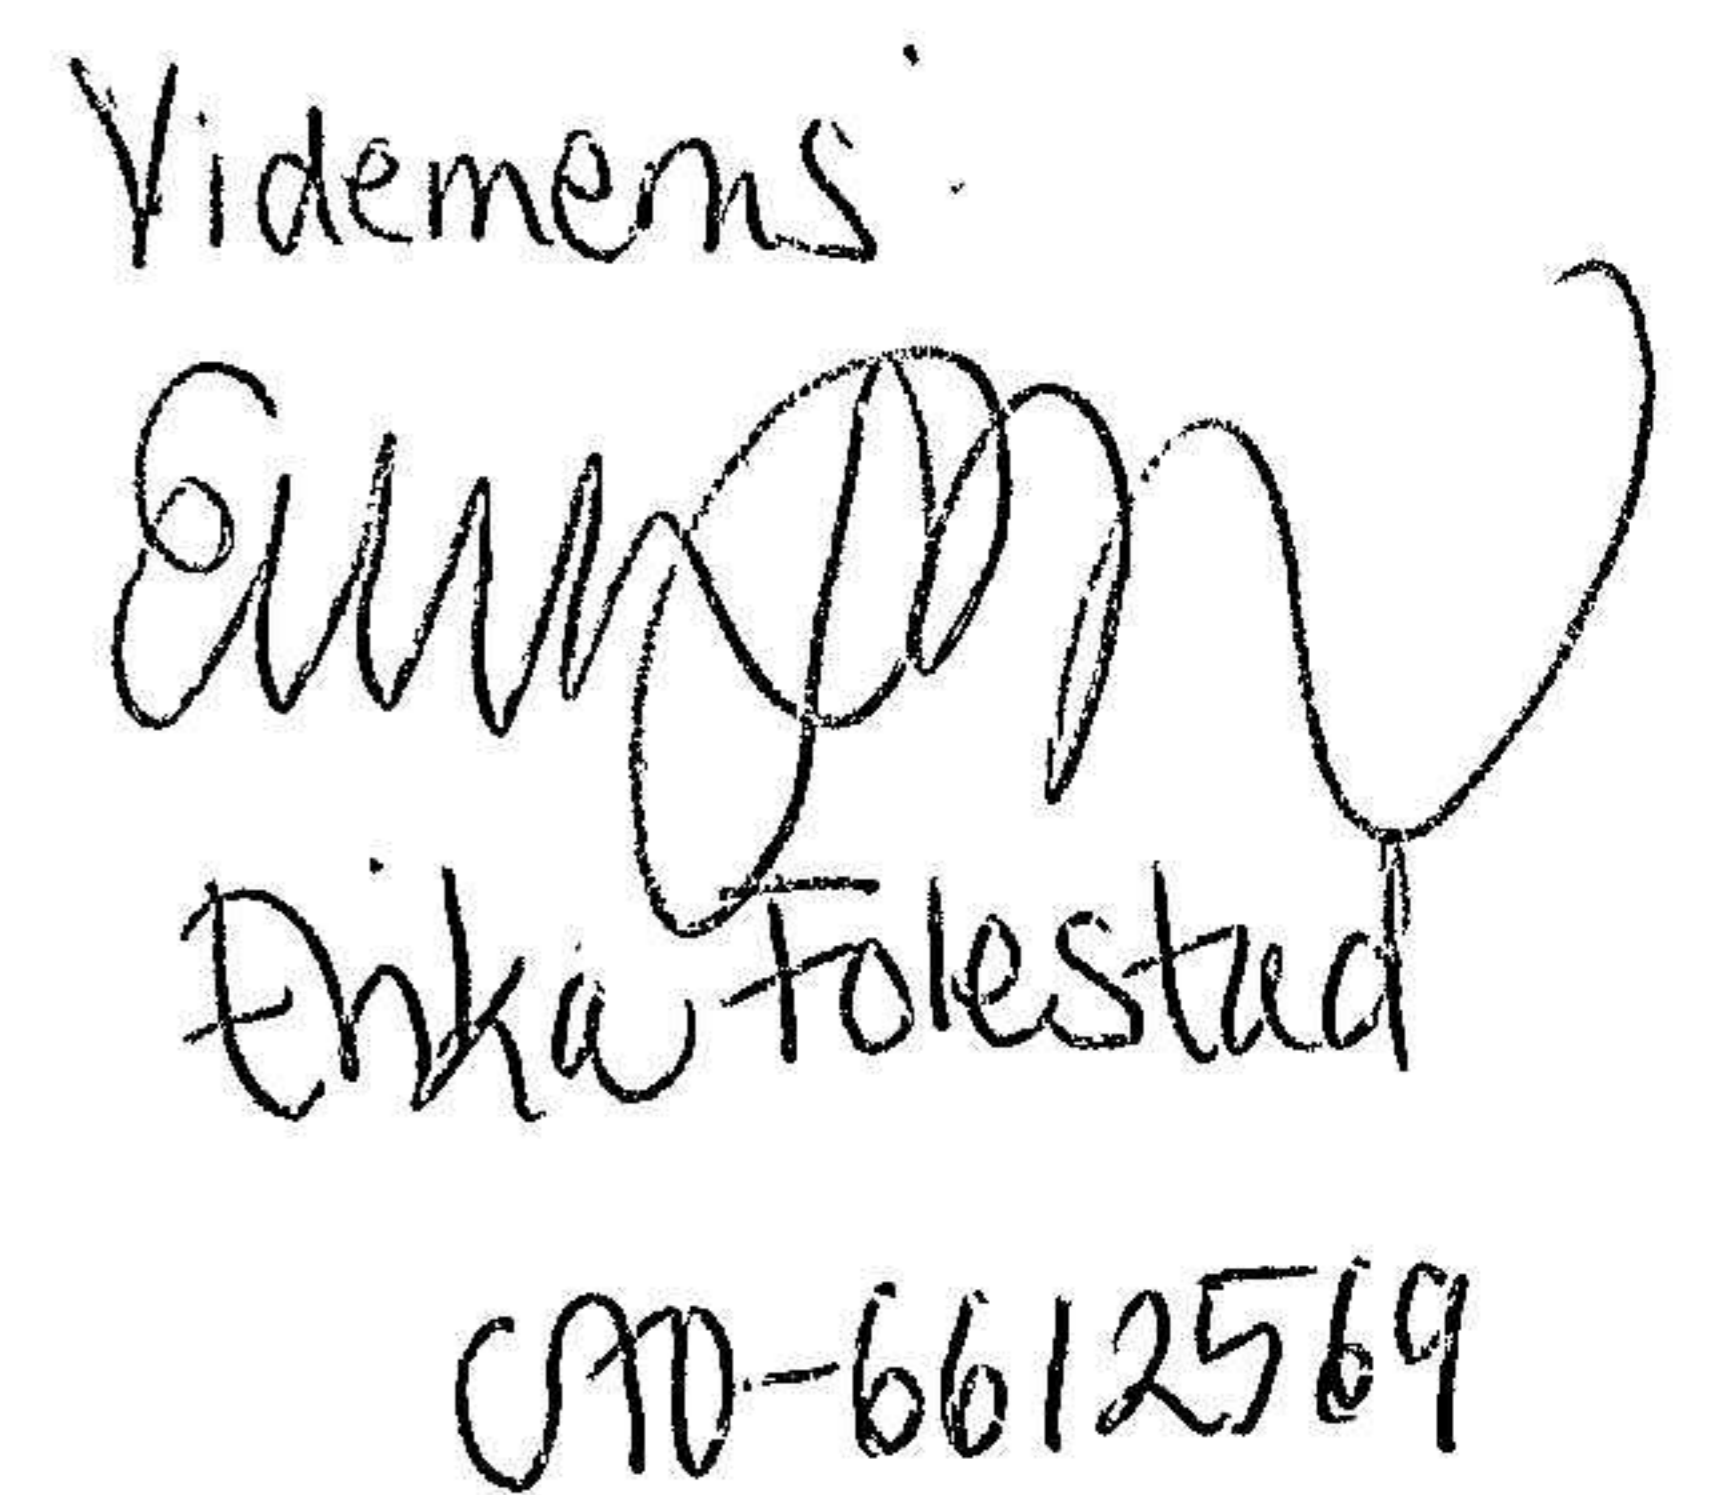 Videmens:
Erika Folestad
070-6612569